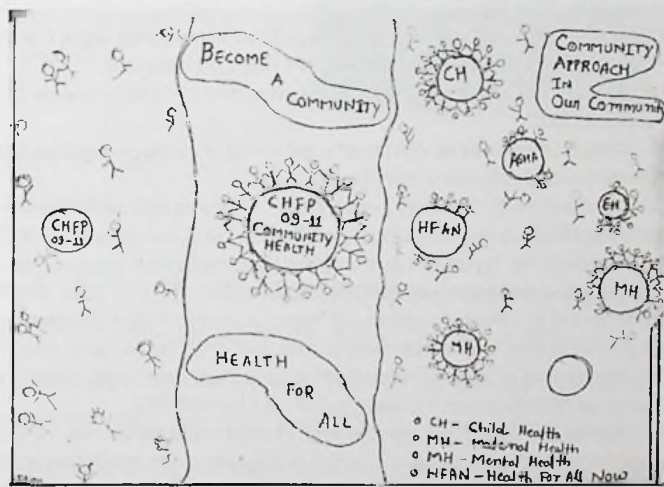 BECOME
A
COMMUNITY
CHFP
09-11
CHFP
09-11
COMMUNITY
HEALTH
HEALTH
FOR
ALL
CH
COMMUNITY
APPROACH
IN
OUR COMMUNITY
ASHA
EH
HFAN
MH
MH
o CH - Child Health
o MH - Maternal Health
o MH - Mental Health
o HFAN - Health For All NOW